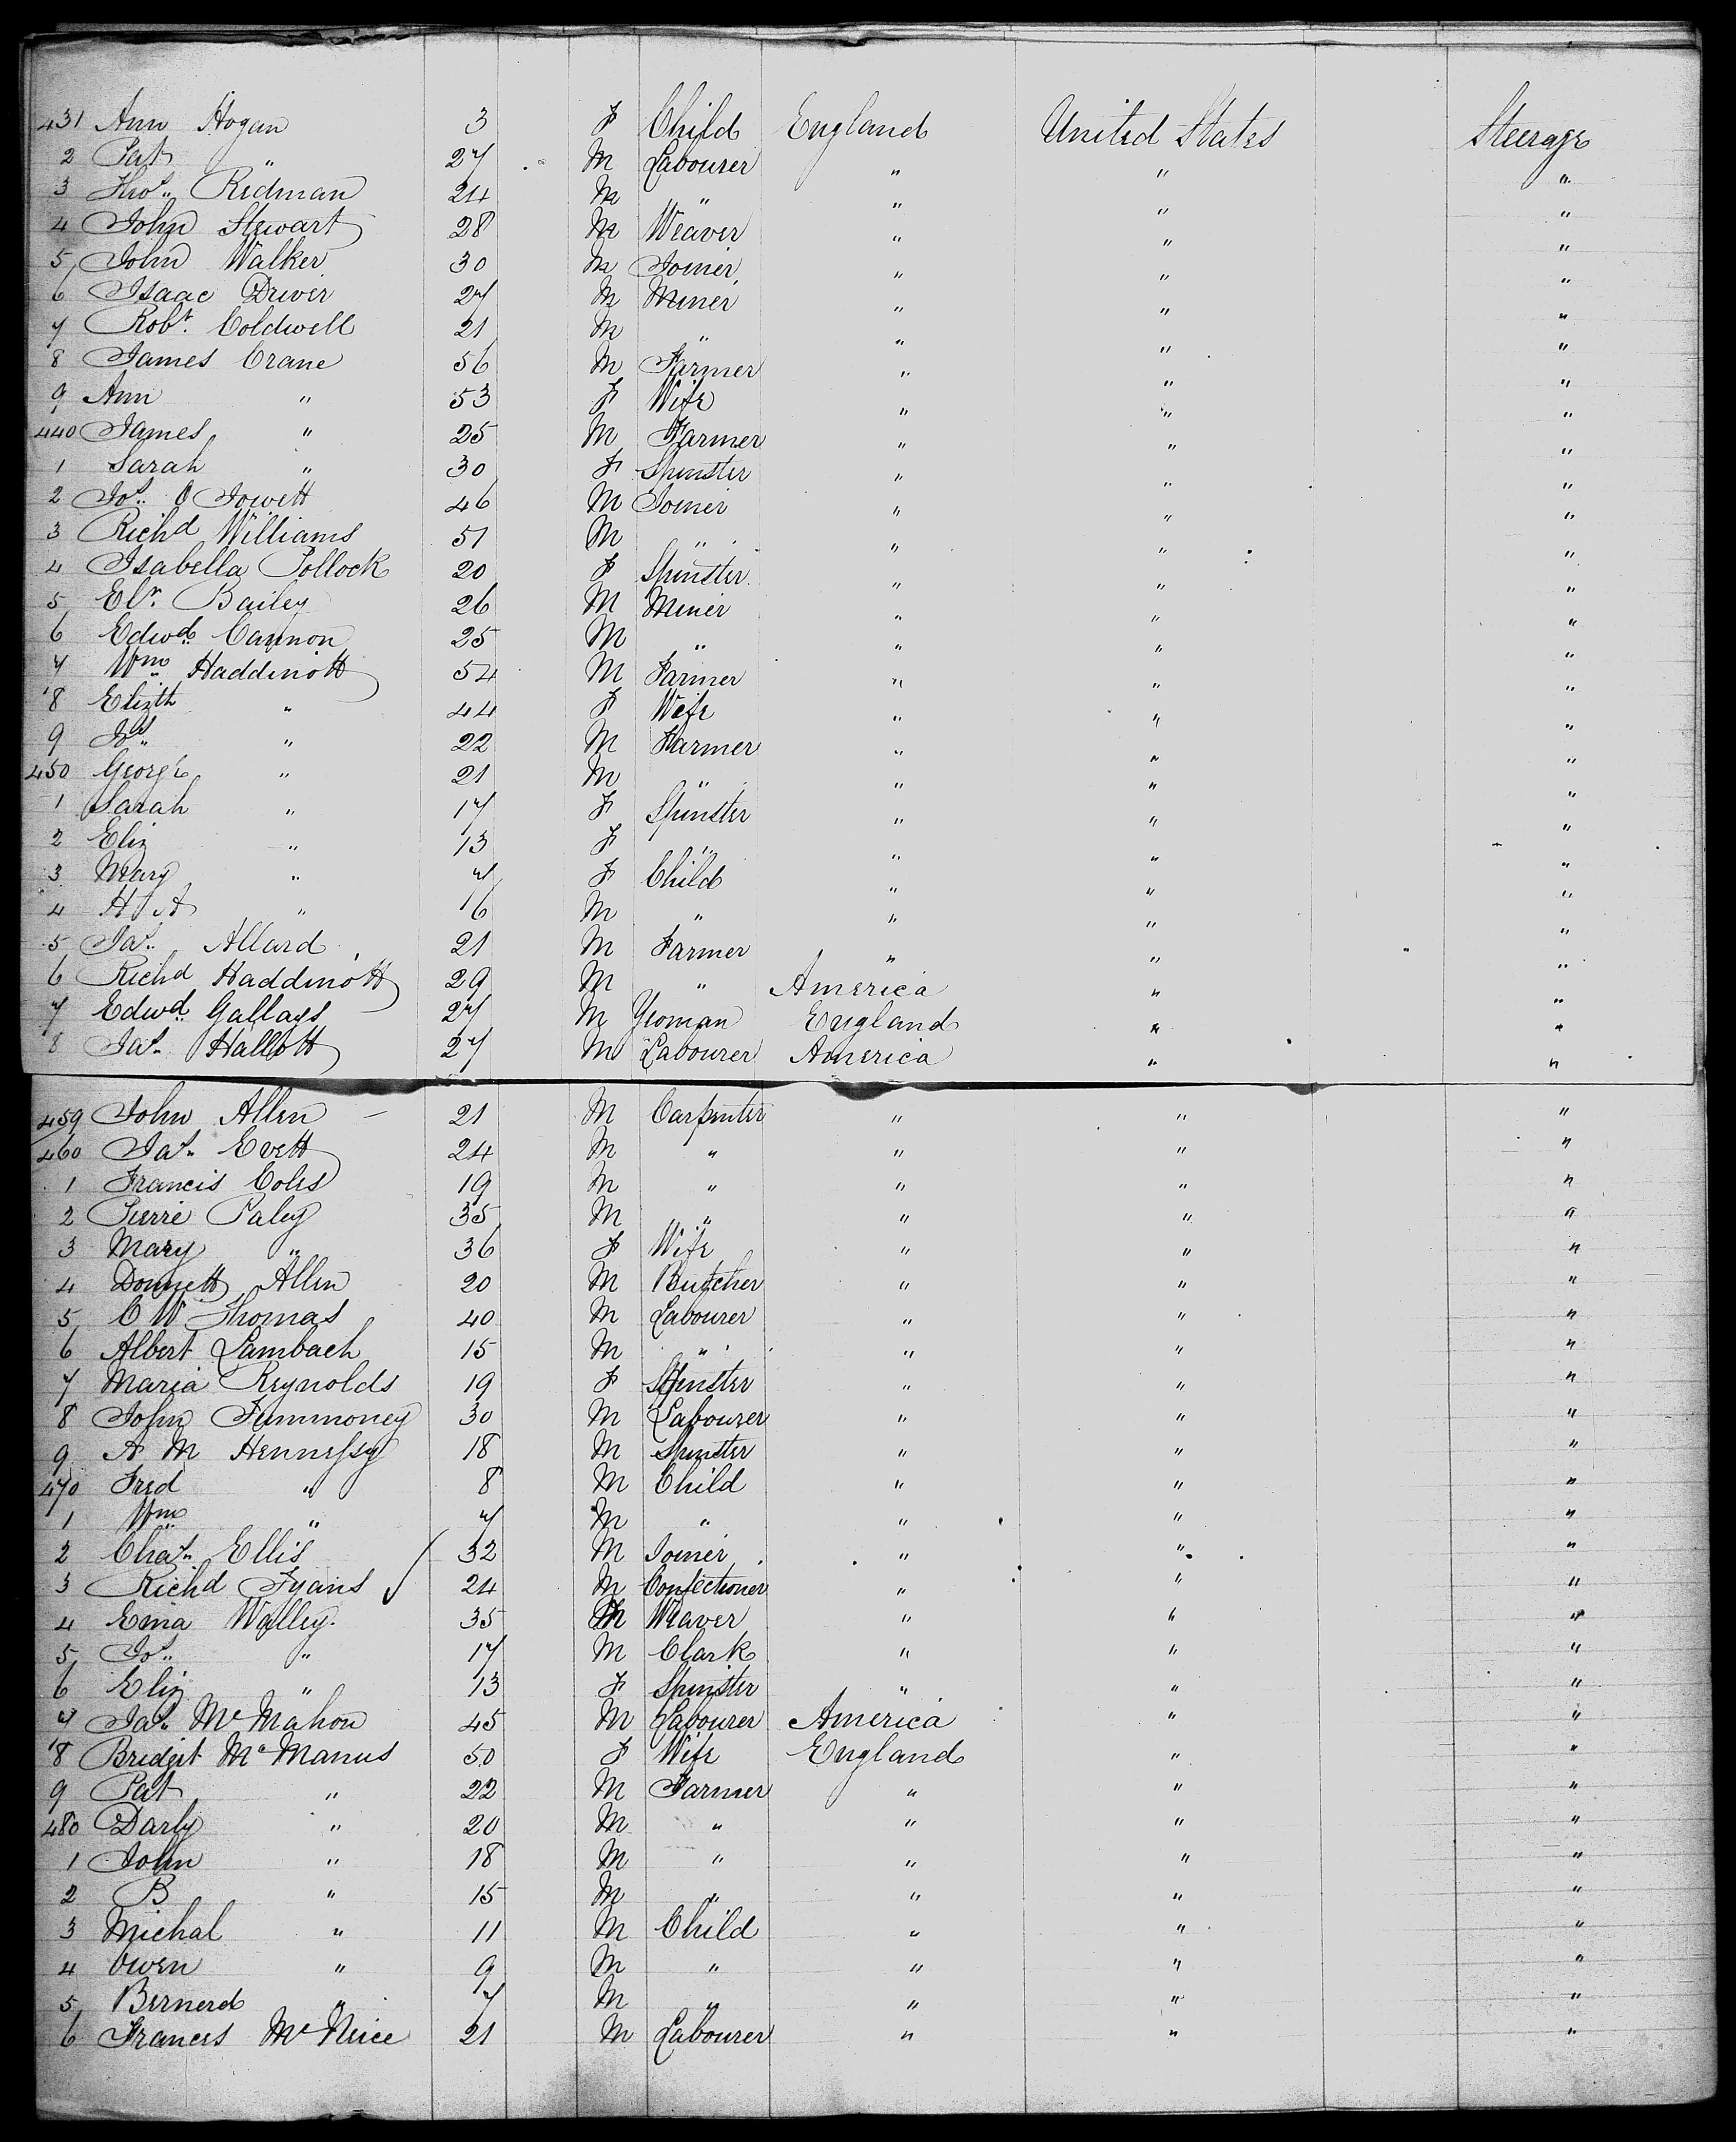 431 Ann Hogan 3 F Child England United States Steerage
2 Pat " 27 M Labourer " " "
3 Thos. Redman 24 M " " " "
4 John Stewart 28 M Weaver " " "
5 John Walker 30 M Joiner " " "
6 Isaac Driver 27 M Miner " " "
7 Robt. Coldwell 21 M " " " "
8 James Crane 56 M Farmer " " "
9 Ann " 53 F Wife " " "
440 James " 25 M Farmer " " "
1 Sarah " 30 F Spinster " " "
2 Jos. O Jowett 46 M Joiner " " "
3 Richd Williams 51 M " " " "
4 Isabella Pollock 20 F Spinster " " "
5 Elr. Bailey 26 M Miner " " "
6 Edwd. Cannon 25 M " " " "
7 Wm. Haddinott 54 M Farmer " " "
8 Elizth " 44 F Wife " " "
9 Jos. " 22 M Farmer " " "
450 George " 21 M " " " "
1 Sarah " 17 F Spinster " " "
2 Eliz " 13 F " " " "
3 Mary " 7 F Child " " "
4 H A " 16 M " " " "
5 Jas. Allard 21 M Farmer " " "
6 Richd Haddinott 29 M " America " "
7 Edwd. Gallays 27 M Yeoman England " "
8 Jas. Hallott 27 M Labourer America " "
459 John Allen 21 M Carpenter " " "
460 Jas. Evett 24 M " " " "
1 Francis Coles 19 M " " " "
2 Pierre Paley 35 M " " " "
3 Mary " 36 F Wife " " "
4 Donnett Allen 20 M Butcher " " "
5 C W Thomas 40 M Labourer " " "
6 Albert Lambach 15 M " " " "
7 Maria Reynolds 19 F Spinster " " "
8 John Fummoney 30 M Labourer " " "
9 A M Hennessy 18 M Spinster " " "
470 Fred " 8 M Child " " "
1 Wm " 7 M " " " "
2 Chas. Ellis 32 M Joiner " " "
3 Richd Fyans 24 M Confectioner " " "
4 Ema Walley 35 M Weaver " " "
5 Jos. " 17 M Clark " " "
6 Eliz " 13 F Spinster " " "
7 Jas. Mc Mahon 45 M Labourer America " "
8 Bridget Mc Manus 50 F Wife England " "
9 Pat " 22 M Farmer " " "
480 Darby " 20 M " " " "
1 John " 18 M " " " "
2 B " 15 M " " " "
3 Michal " 11 M Child " " "
4 Owen " 9 M " " " "
5 Bernerd " 7 M " " " "
6 Frances Mc Niece 21 M Labourer " " "